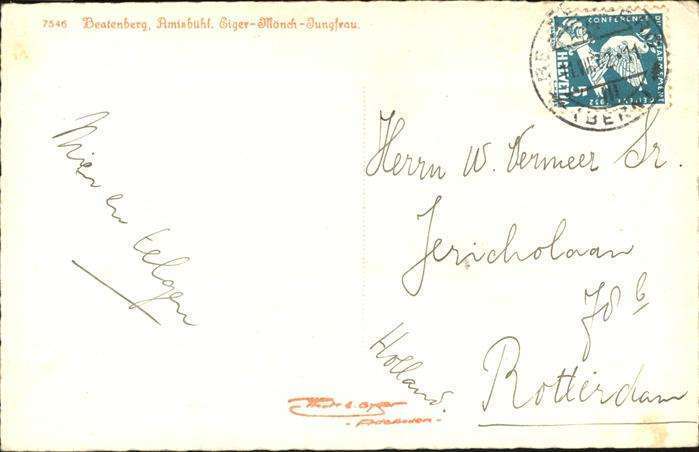 7546 Beatenberg, Amisbühl. Eiger-Mönch-Jungfrau.
CONFERENCE DU DESARMEMENT
HELVETIA
GENEVE 1932
(BERN)
Herrn W. Vermeer Sr.
Jericholaan
78 b
Rotterdam
Holland.